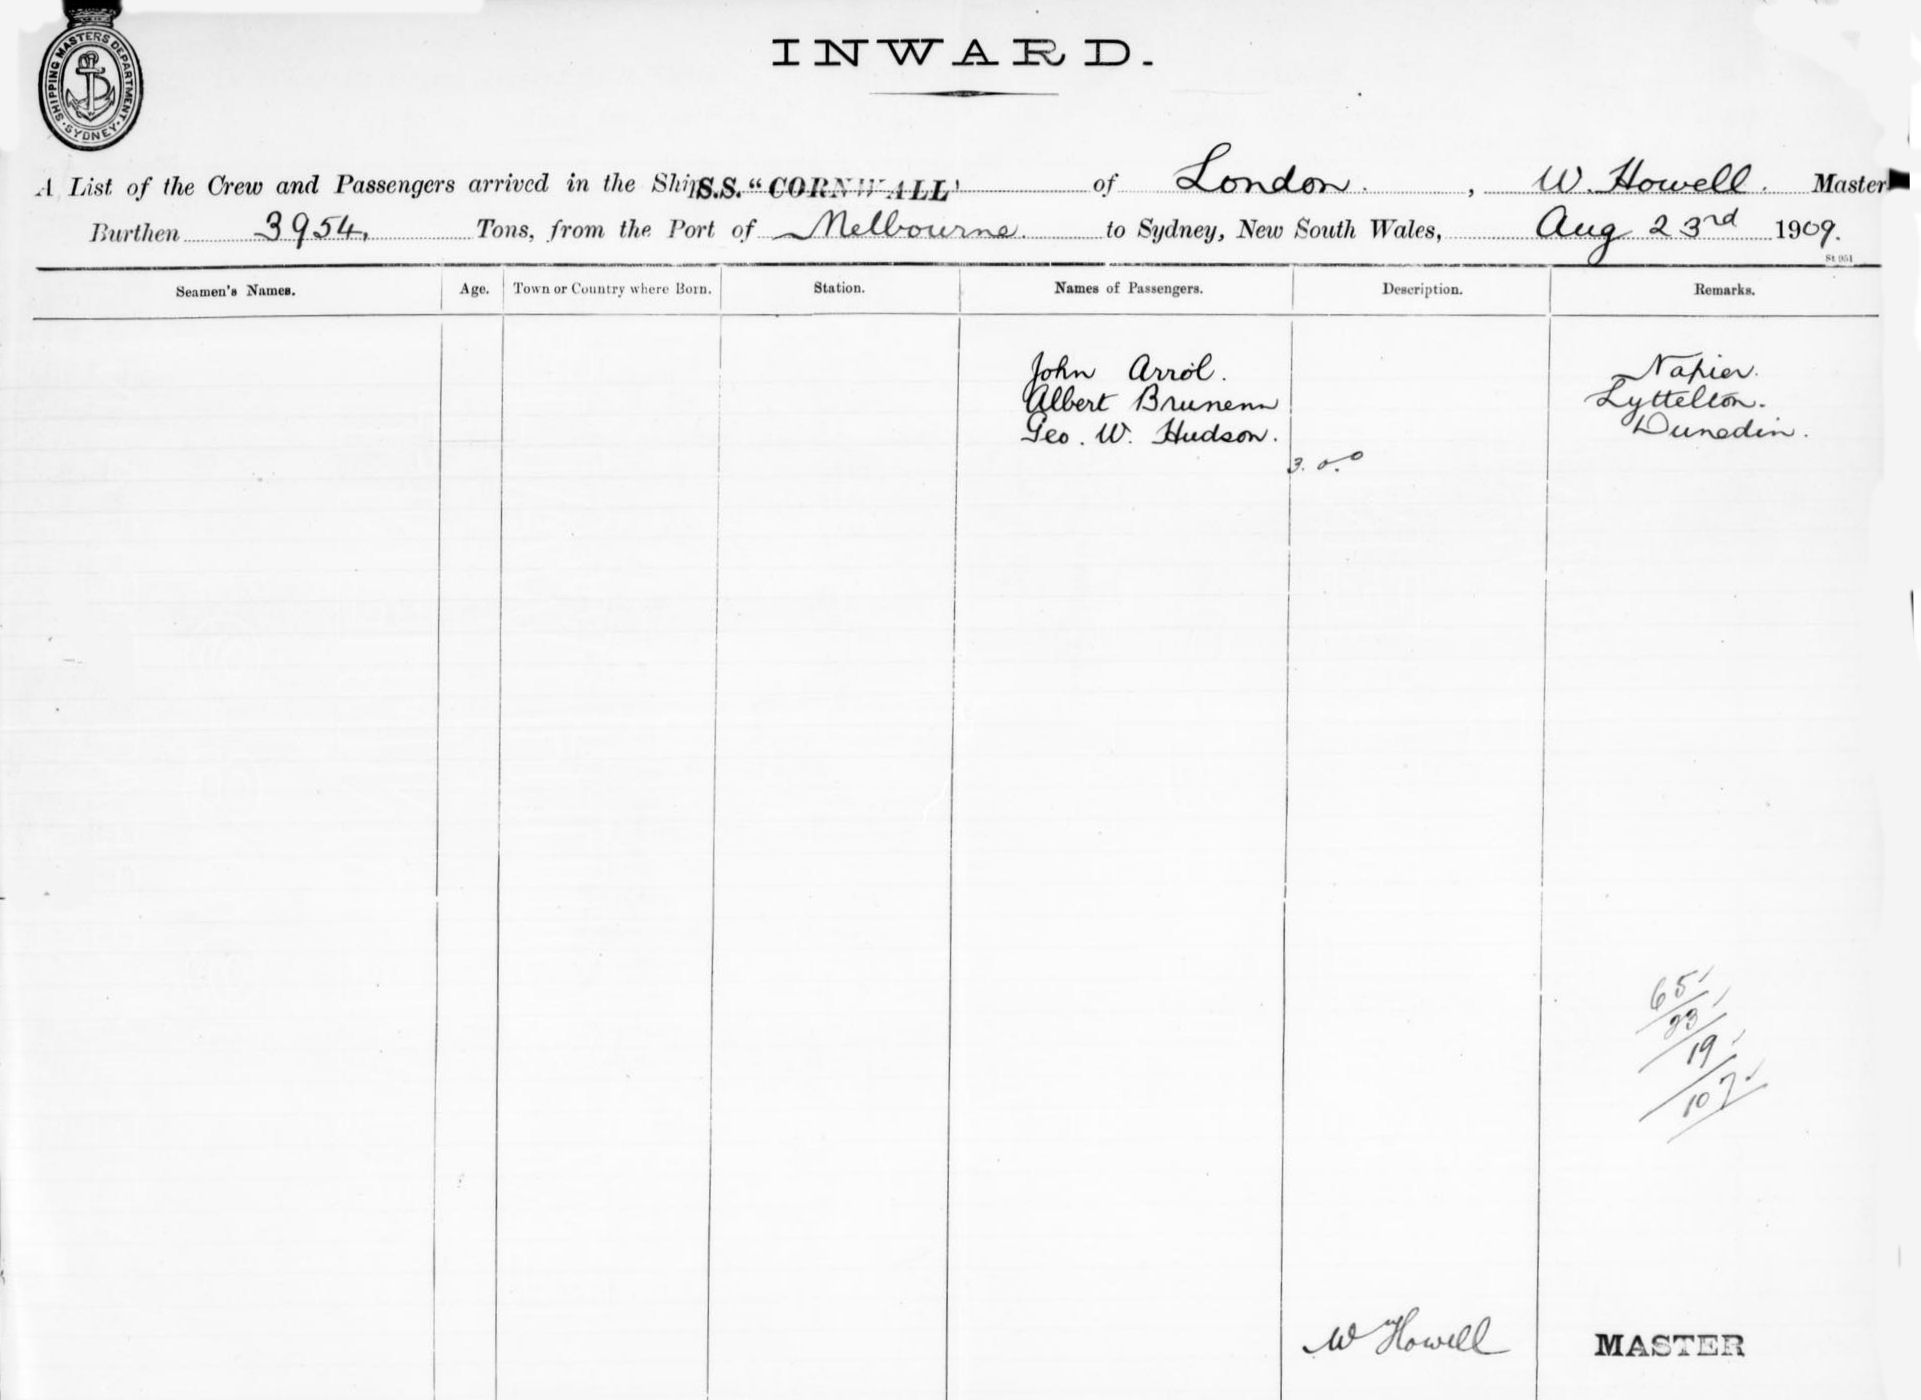 SHIPPING MASTERS DEPARTMENT
SYDNEY
INWARD.
A List of the Crew and Passengers arrived in the Ship S.S. "CORNWALL" of London. , W. Howell. Master
Burthen 3954, Tons, from the Port of Melbourne to Sydney, New South Wales, Aug 23rd 1909.
St 951
Seamen's Names. Age. Town or Country where Born. Station. Names of Passengers. Description. Remarks.
John Arrol. Napier.
Albert Lyttelton.
Geo. W. Hudson. Dunedin.
3. 0. 0
65
23
19
107
Wm Howell MASTER